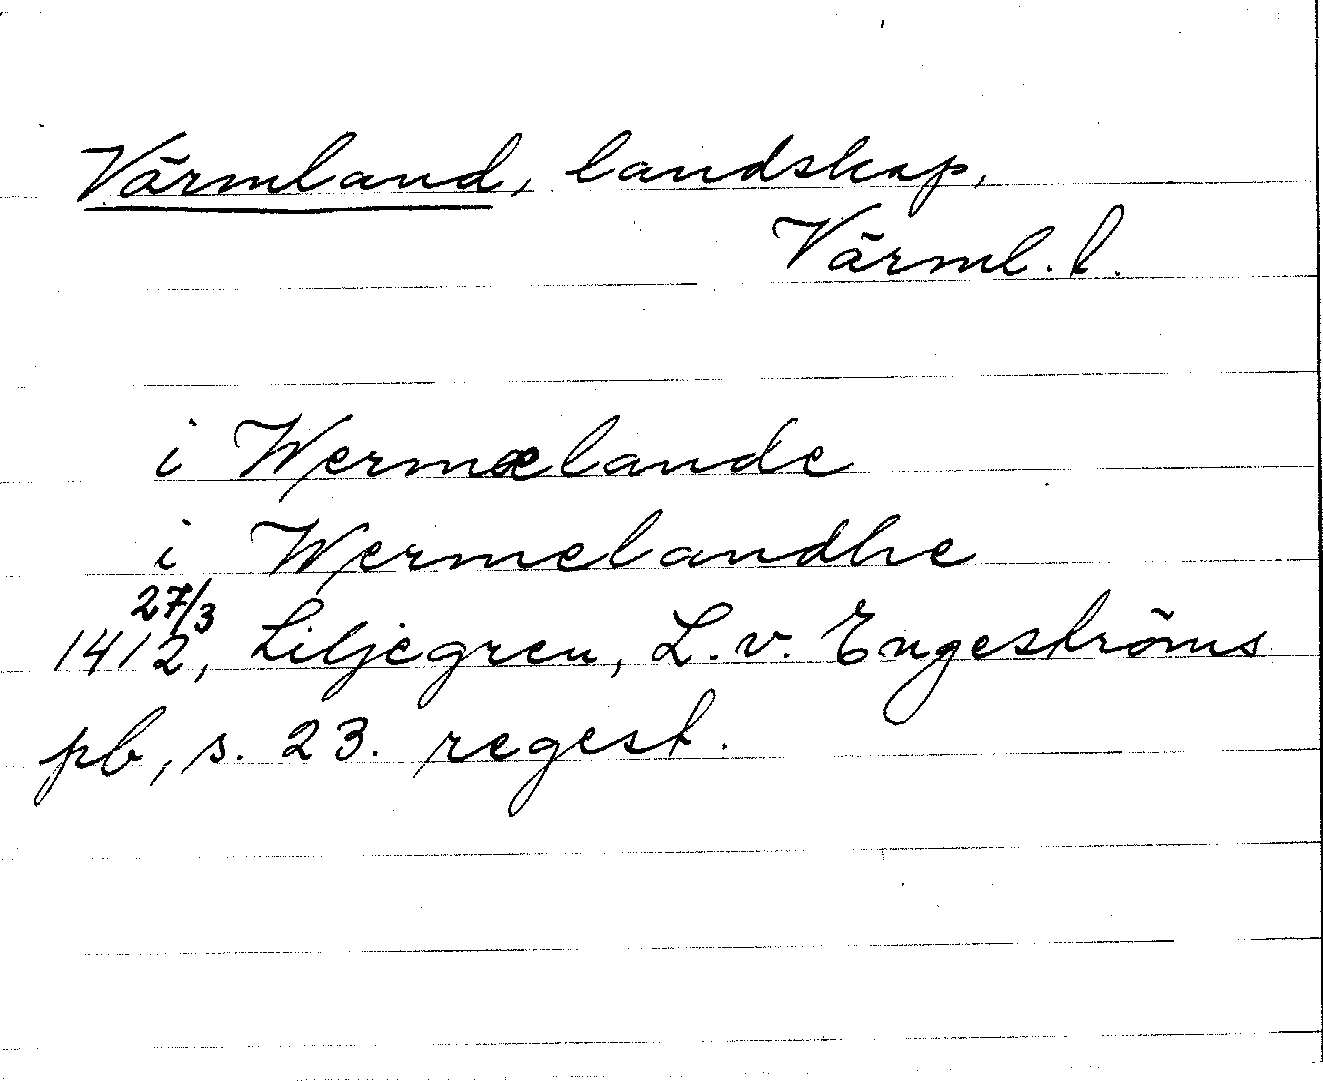 Värmland, landskap,
Värml. l.
i Wermælande
i Wermelandhe
27/3
1412, Liljegren, L. v. Engeströms
pb, s. 23. regest.